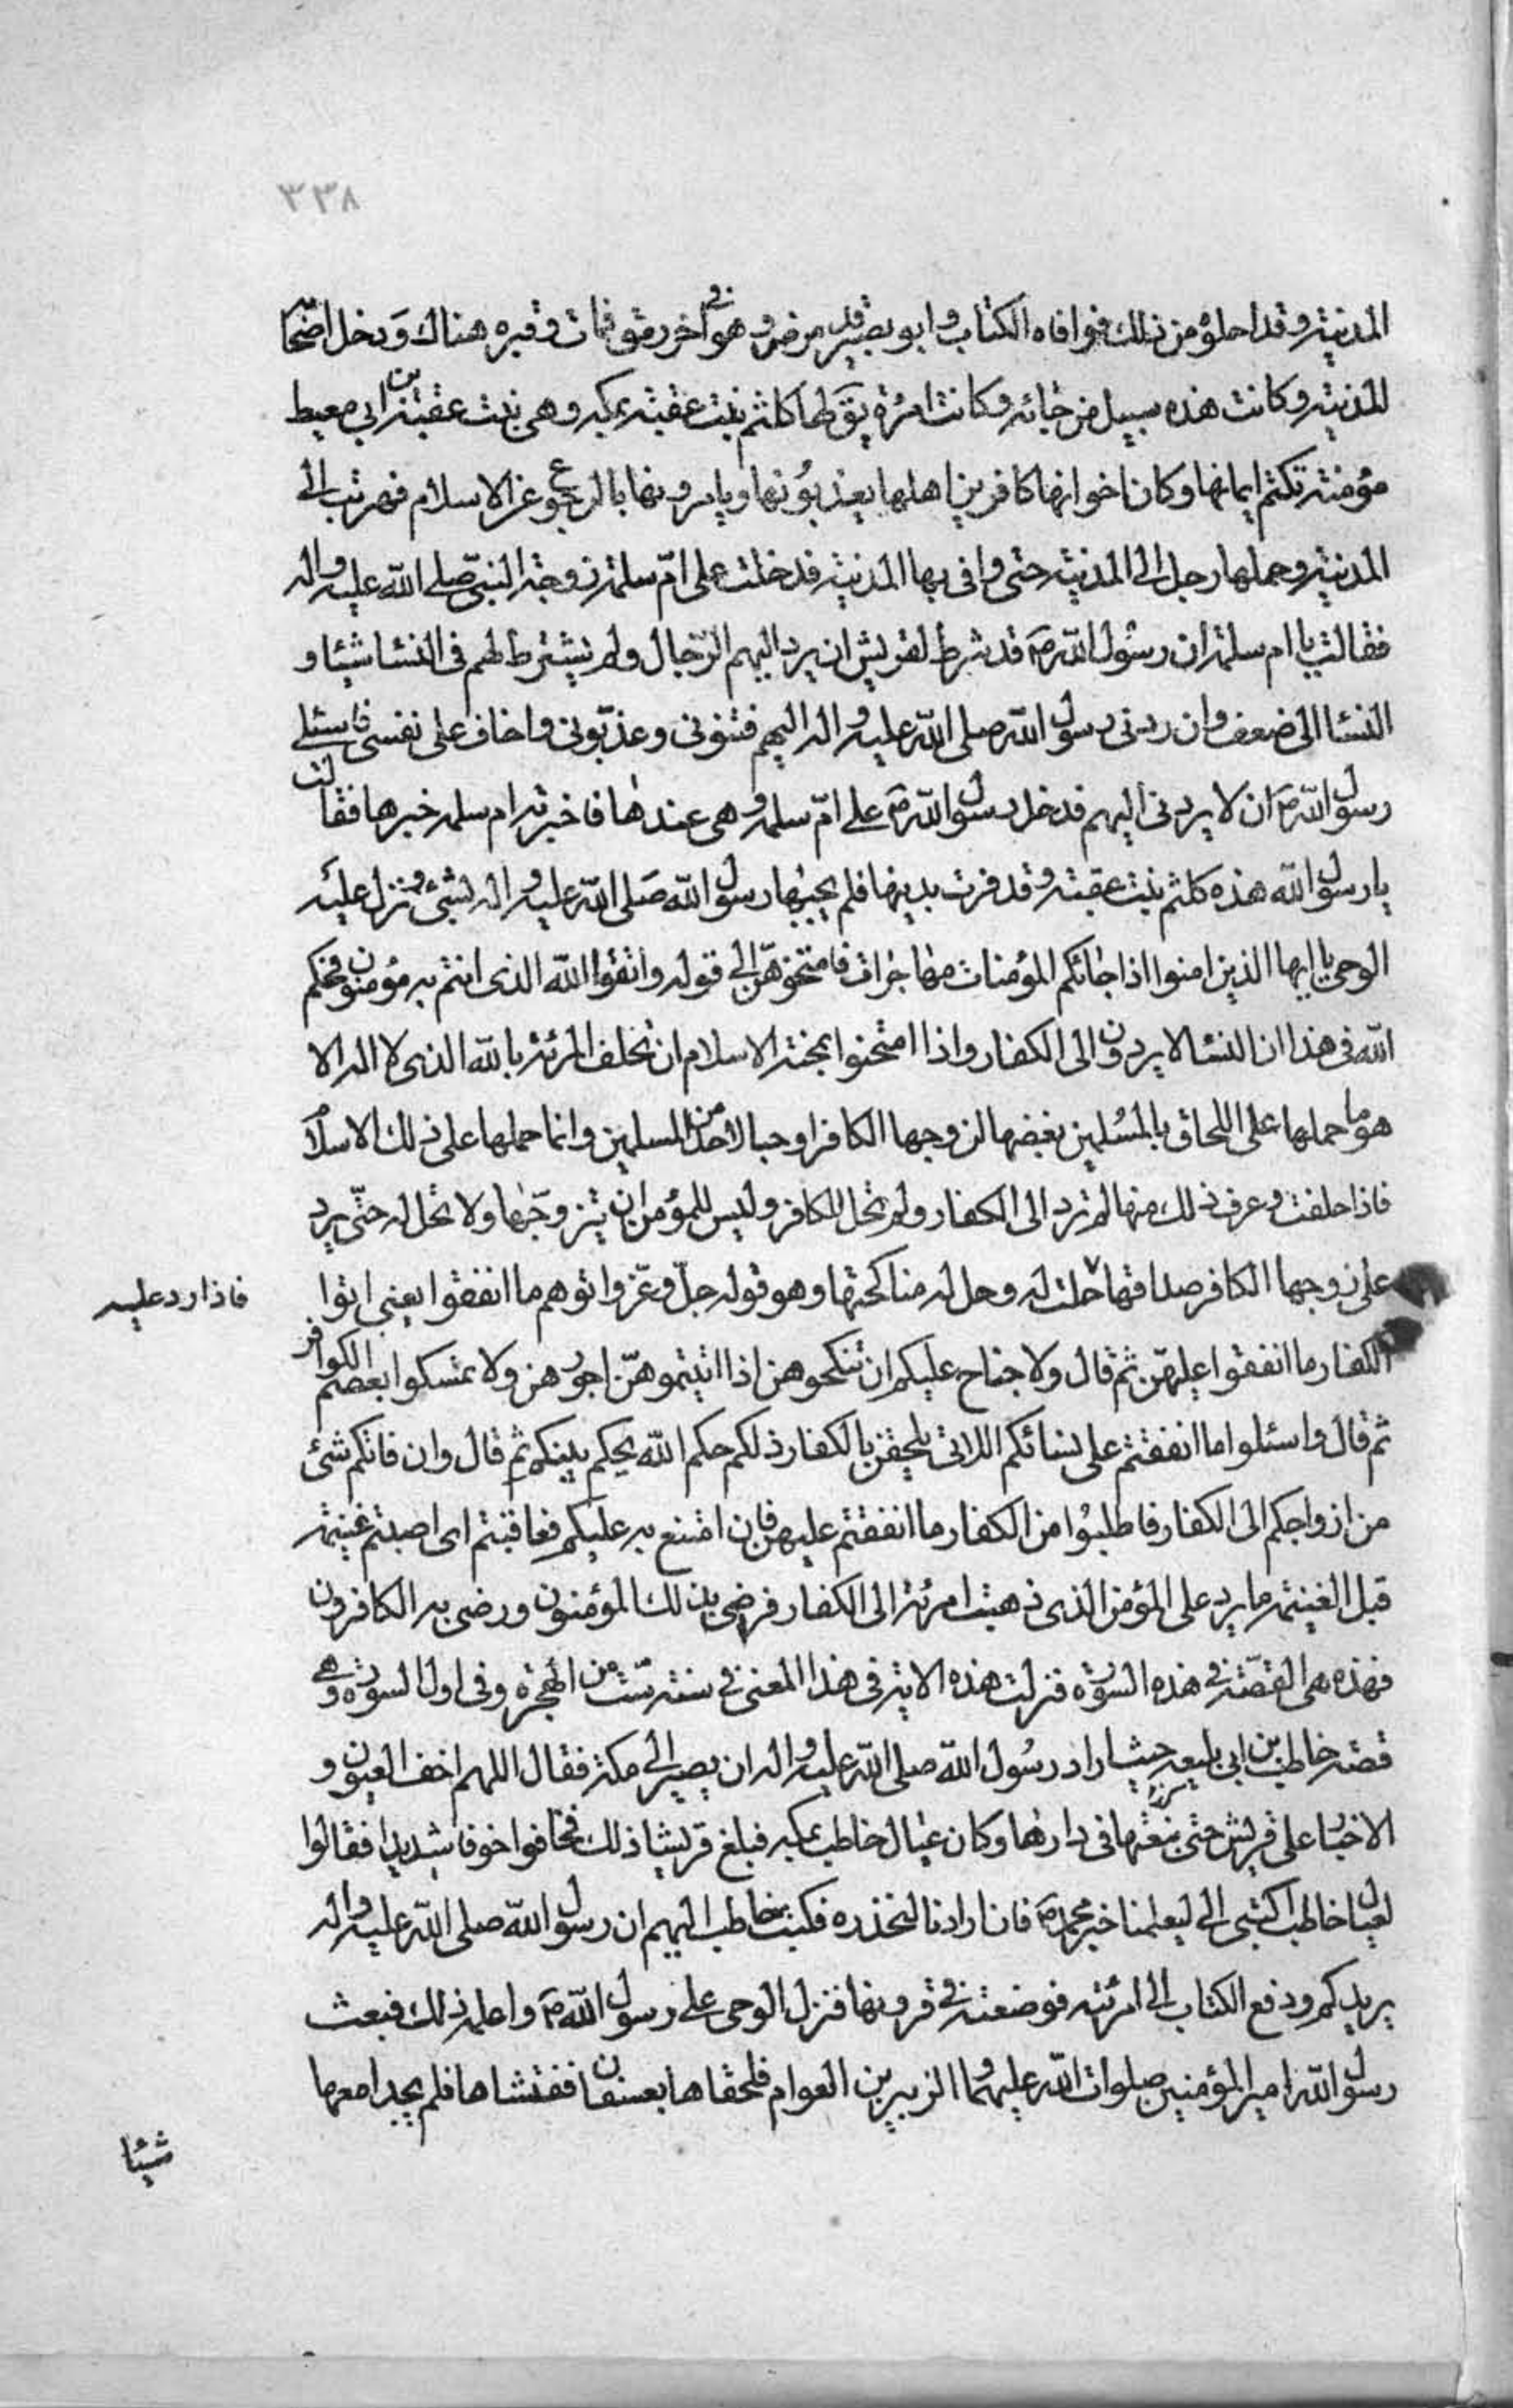 ٣٣٨
المدينة وقد احلوه من ذلك فوافاه الكتاب وابو بصير قد مرض وهو في آخر رمق فمات وقبره هناك ودخل اصحابه
المدينة وكانت هذه سبيل من جائه وكانت امرئة يق لها كلثم بنت عقبة بمكة وهى بنت عقبة بن ابي معيط
مؤمنة تكتم ايمانها وكان اخوانها كافرين اهلها يعذبونها ويامرونها بالرجوع عن الاسلام فهربت الى
المدينة وحملها رجل الى المدينة حتى وافى بها المدينة فدخلت على امّ سلمة زوجة النبىّ صلى الله عليه واله
فقالت يا ام سلمة ان رسول الله ص قد شرط لقريش ان يرد اليهم الرّجال ولم يشترط لهم فى النسا شيئا و
النسا الى ضعف وان ردنى رسول الله صلى الله عليه واله اليهم فتنونى وعذبّونى واخاف على نفسى فاسئلى
رسول الله ص ان لا يردنى اليهم فدخل رسول الله ص على امّ سلمة وهى عندها فاخبرته ام سلمة خبرها فقالت
يا رسول الله هذه كلثم بنت عقبة وقد فرت بدينها فلم يجبها رسول الله صلى الله عليه واله بشئ ونزل عليه
الوحى يا ايها الذين امنوا اذا جائكم المؤمنات مهاجرات فامتحنوهنّ الى قوله واتقوا الله الذى انتم به مؤمنون فحكم
الله فى هذا ان النسا لا يردون الى الكفار واذا امتحنوا بمحنة الاسلام ان تحلف المرئة بالله الذى لا اله الا
هو ما حملها على اللحاق بالمسلمين بغضها لزوجها الكافر او حبا لاحد من المسلمين وانما حملها على ذلك الاسلام
فاذا حلفت وعرف ذلك منها لم ترد الى الكفار ولم تحل للكافر وليس للمؤمن ان يتزوّجها ولا تحل له حتّى يرد
على زوجها الكافر صداقها حلت له وحل له مناكحتها وهو قوله جلّ وعزّ واتوهم ما انفقوا يعنى اتوا
فاذا رد عليه
الكفار ما انفقوا عليهنّ ثم قال ولا جناح عليكم ان تنكحوهن اذا اتيتموهنّ اجورهن ولا تمسكوا بعصم الكوافر
ثم قال واسئلوا ما انفقتم على نسائكم اللاتى يلحقن بالكفار ذلكم حكم الله يحكم بينكم ثم قال وان فاتكم شئ
من ازواجكم الى الكفار فاطلبوا من الكفار ما انفقتم عليهن فان امتنع به عليكم فعاقبتم اى اصبتم غنيمة
قبل الغنيمة ما يرد على المؤمن الذى ذهبت امرئته الى الكفار فرضى بذلك المؤمنون ورضى به الكافرون
فهذه هى القصّة فى هذه السورة فنزلت هذه الاية فى هذا المعنى فى سنة ستّ من الهجرة وفى اول السورة وهى
قصة خاطب بن ابى بليعه حيث اراد رسول الله صلى الله عليه واله ان يصير الى مكة فقال اللهم اخف العيون و
الاخبار على قريش حتى نبغتها فى دارها وكان عيال خاطب بمكة فبلغ قريشا ذلك فخافوا خوفا شديدا فقالوا
لعيال خاطب اكتبى الى ليعلمنا خبر محمد ص فان ارادنا لنحذره فكتب خاطب اليهم ان رسول الله صلى الله عليه واله
يريدكم ودفع الكتاب الى امرئته فوضعته فى قرونها فنزل الوحى على رسول الله ص واعلمه ذلك فبعث
رسول الله امير المؤمنين صلوات الله عليهما والزبير بن العوام فلحقاها بعسفان ففتشاها فلم يجدا معها
شيئا